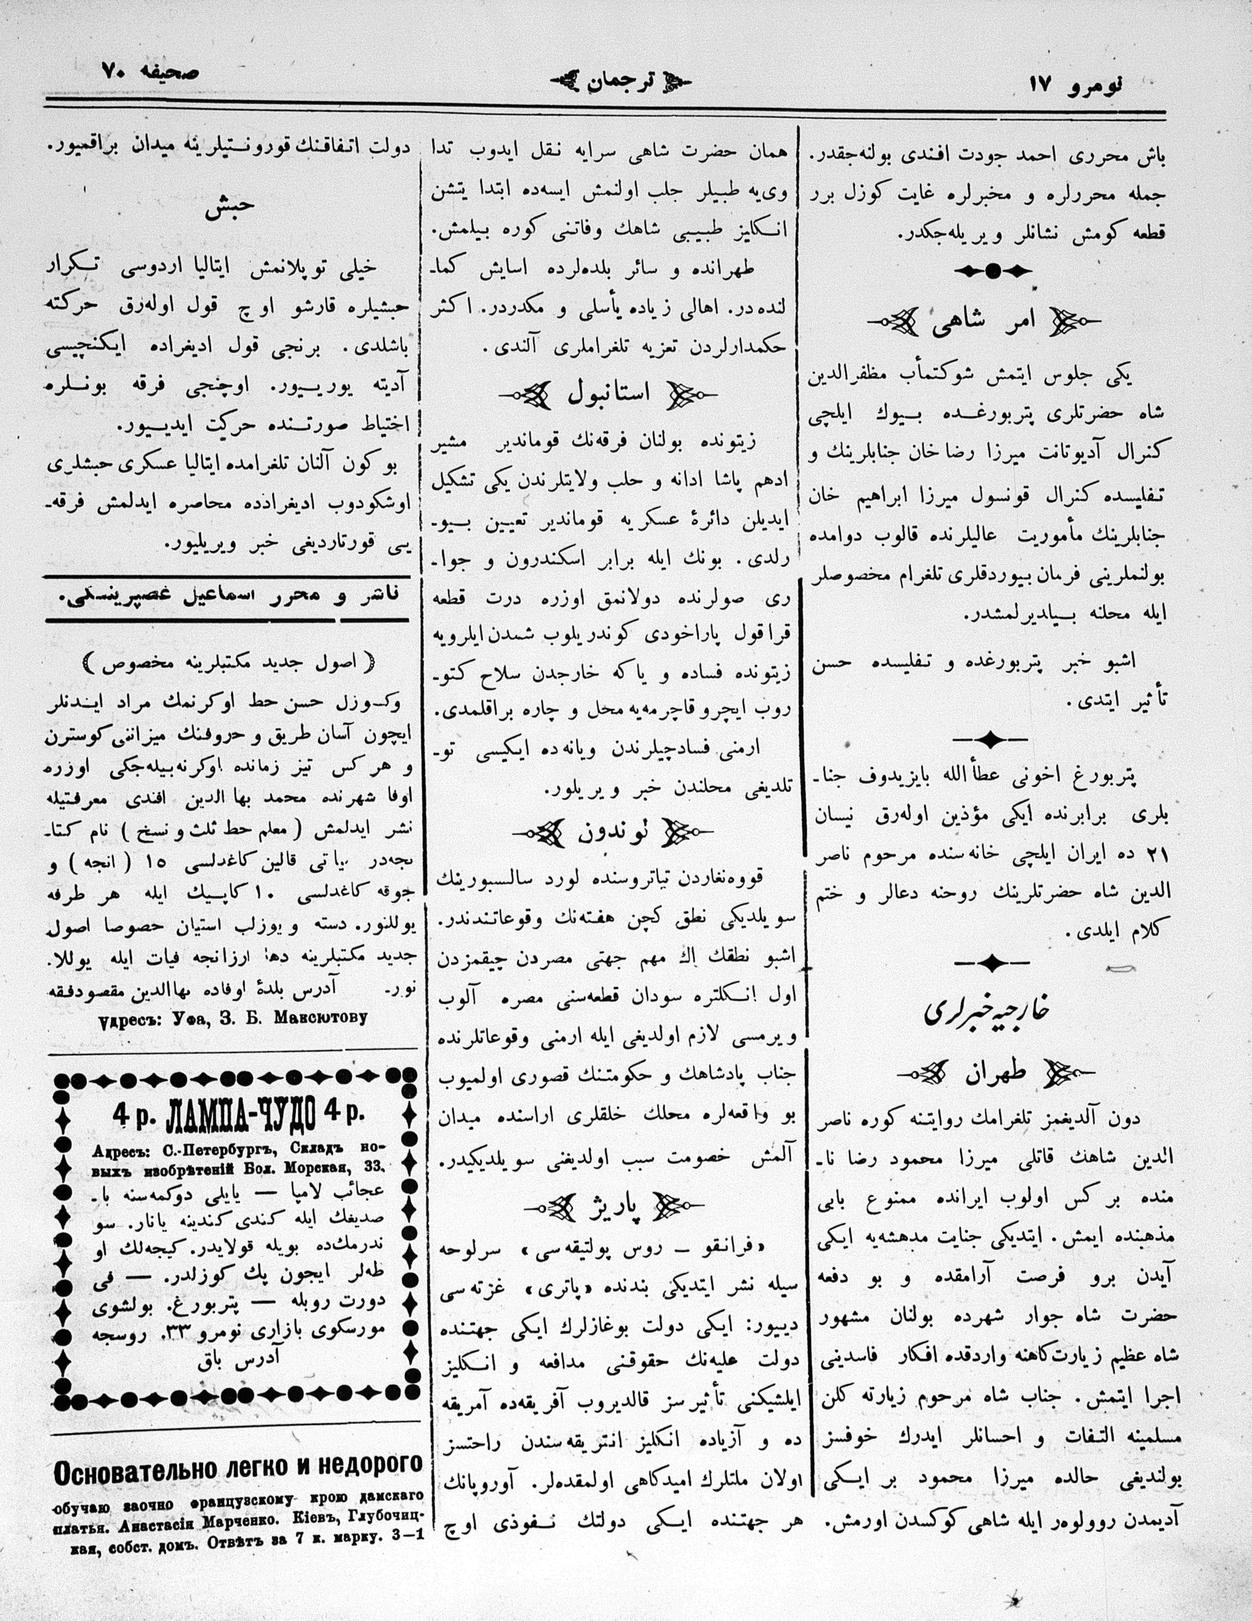 نومرو ١٧
ترجمان
صحیفه ٧٠
باش محرری احمد جودت افندی بولنه‌جقدر.
جمله محررلره و مخبرلره غایت کوزل برر
قطعه کومش نشانلر ویریله‌جکدر.
امر شاهی
یکی جلوس ایتمش شوکتمأب مظفرالدین
شاه حضرتلری پتربورغده بیوك ایلچی
کنرال آدیوتانت میرزا رضا خان جنابلرینك و
تفلیسده کنرال قونسول میرزا ابراهیم خان
جنابلرینك مأموریت عالیلرنده قالوب دوامده
بولنملرینی فرمان بیوردقلری تلغرام مخصوصلر
ایله محلنه بیلدیرلمشدر.
اشبو خبر پتربورغده و تفلیسده حسن
تأثیر ایتدی.
پتربورغ اخونی عطأالله بایزیدوف جنا۔
بلری برابرنده ایکی مؤذین اوله‌رق نیسان
٢١ ده ایران ایلچی خانه‌سنده مرحوم ناصر
الدین شاه حضرتلرینك روحنه دعالر و ختم
کلام ایلدی.
خارجیه خبرلری
طهران
دون آلدیغمز تلغرامك روایتنه کوره ناصر
الدین شاهك قاتلی میرزا محمود رضا نا۔
منده بر کس اولوب ایرانده ممنوع بابی
مذهبنده ایمش. ایتدیکی جنایت مدهشه‌یه ایکی
آیدن برو فرصت آرامقده و بو دفعه
حضرت شاه جوار شهرده بولنان مشهور
شاه عظیم زیارت‌کاهنه واردقده افکار فاسدینی
اجرا ایتمش. جناب شاه مرحوم زیارته کلن
مسلمینه التفات و احسانلر ایدرك خوفسز
بولندیغی حالده میرزا محمود بر ایکی
آدیمدن روولوەر ایله شاهی کوکسدن اورمش.
همان حضرت شاهی سرایه نقل ایدوب تدا
وی‌یه طبیلر جلب اولنمش ایسه‌ده ابتدا یتشن
انکلیز طبیبی شاهك وفاتنی کوره بیلمش.
طهرانده و سائر بلده‌لرده اسایش کما۔
لنده‌در. اهالی زیاده یأسلی و مکدردر. اکثر
حکمدارلردن تعزیه تلغراملری آلندی.
استانبول
زیتونده بولنان فرقه‌نك قوماندیر مشیر
ادهم پاشا ادانه و حلب ولایتلرندن یکی تشکیل
ایدیلن دائرۀ عسکریه قوماندیر تعیین بیو۔
رلدی. بونك ایله برابر اسکندرون و جوا۔
ری صولرنده دولانمق اوزره درت قطعه
قراقول پاراخودی کوندریلوب شمدن ایلرویه
زیتونده فساده و یاکه خارجدن سلاح کتو۔
روب ایچرو قاچرمه‌یه محل و چاره براقلمدی.
ارمنی فسادچیلرندن ویانه‌ده ایکیسی تو۔
تلدیغی محلندن خبر ویریلور.
لوندون
قووه‌نغاردن تیاتروسنده لورد سالسبورینك
سویلدیکی نطق کچن هفته‌نك وقوعاتندندر.
اشبو نطقك اك مهم جهتی مصردن چیقمزدن
اول انکلتره سودان قطعه‌سنی مصره آلوب
ویرمسی لازم اولدیغی ایله ارمنی وقوعاتلرنده
جناب پادشاهك و حکومتنك قصوری اولمیوب
بو واقعه‌لره محلك خلقلری اراسنده میدان
آلمش خصومت سبب اولدیغنی سویلدیکیدر.
پاریژ
«فرانقو – روس پولتیقه‌سی» سرلوحه
سیله نشر ایتدیکی بندنده «پاتری» غزته‌سی
دییور: ایکی دولت بوغازلرك ایکی جهتنده
دولت علیه‌نك حقوقنی مدافعه و انکلیز
ایلشیکنی تأثیرسز قالدیروب آفریقه‌ده آمریقه
ده و آزیاده انکلیز انتریقه‌سندن راحتسز
اولان ملتلرك امیدکاهی اولمقده‌لر. آوروپانك
هر جهتنده ایکی دولتك نفوذی اوچ
دولت اتفاقنك قورونتیلرینه میدان براقمیور.
حبش
خیلی توپلانمش ایتالیا اردوسی تکرار
حبشیلره قارشو اوچ قول اوله‌رق حرکته
باشلدی. برنجی قول ادیغراده ایکنچیسی
آدیته یوریبور. اوچنجی فرقه بونلره
اختیاط صورتنده حرکت ایدییور.
بو کون آلنان تلغرامده ایتالیا عسکری حبشلری
اوشکودوب ادیغرادده محاصره ایدلمش فرقه۔
یی قورتاردیغی خبر ویریلیور.
ناشر و محرر اسماعیل غصپرینسکی.
(اصول جدید مکتبلرینه مخصوص)
وکوزل حسن حط اوکرنمك مراد ایدنلر
ایچون آسان طریق و حروفنك میزانی کوسترن
و هر کس تیز زمانده اوکرنه‌بیله‌جکی اوزره
اوفا شهرنده محمد بها الدین افندی معرفتیله
نشر ایدلمش (معلم حط ثلث و نسخ) نام کتا۔
بجه‌در یاتی قالین کاغدلسی ١٥ (انجه) و
جوقه کاغدلسی ١٠ کاپیك ایله هر طرفه
یوللنور. دسته و یوزلب استیان حصوصا اصول
جدید مکتبلرینه دها ارزانجه فیات ایله یوللا.
نور۔ آدرس بلدۀ اوفاده بهاالدین مقصودفقه
Адресъ: Уфа, З. Б. Максютову
4 р. ЛАМПА-ЧУДО 4 р.
Адресъ: С.-Петербургъ, Складъ но-
выхъ изобрѣтеній Бол. Морская, 33.
عجائب لامپا — یایلی دوکمه‌سنه با۔
صدیغك ایله کندی کندینه یانار. سو
ندرمك‌ده بویله قولایدر. کیجه‌لك او
طه‌لر ایچون پك کوزلدر. — فی
دورت روبله — پتربورغ. بولشوی
مورسکوی بازاری نومرو ٣٣. روسجه
آدرس باق
Основательно легко и недорого
обучаю заочно французскому крою дамскаго
платья. Анастасія Марченко. Кіевъ, Глубочиц-
кая, собст. домъ. Отвѣтъ за 7 к. марку. 3—1